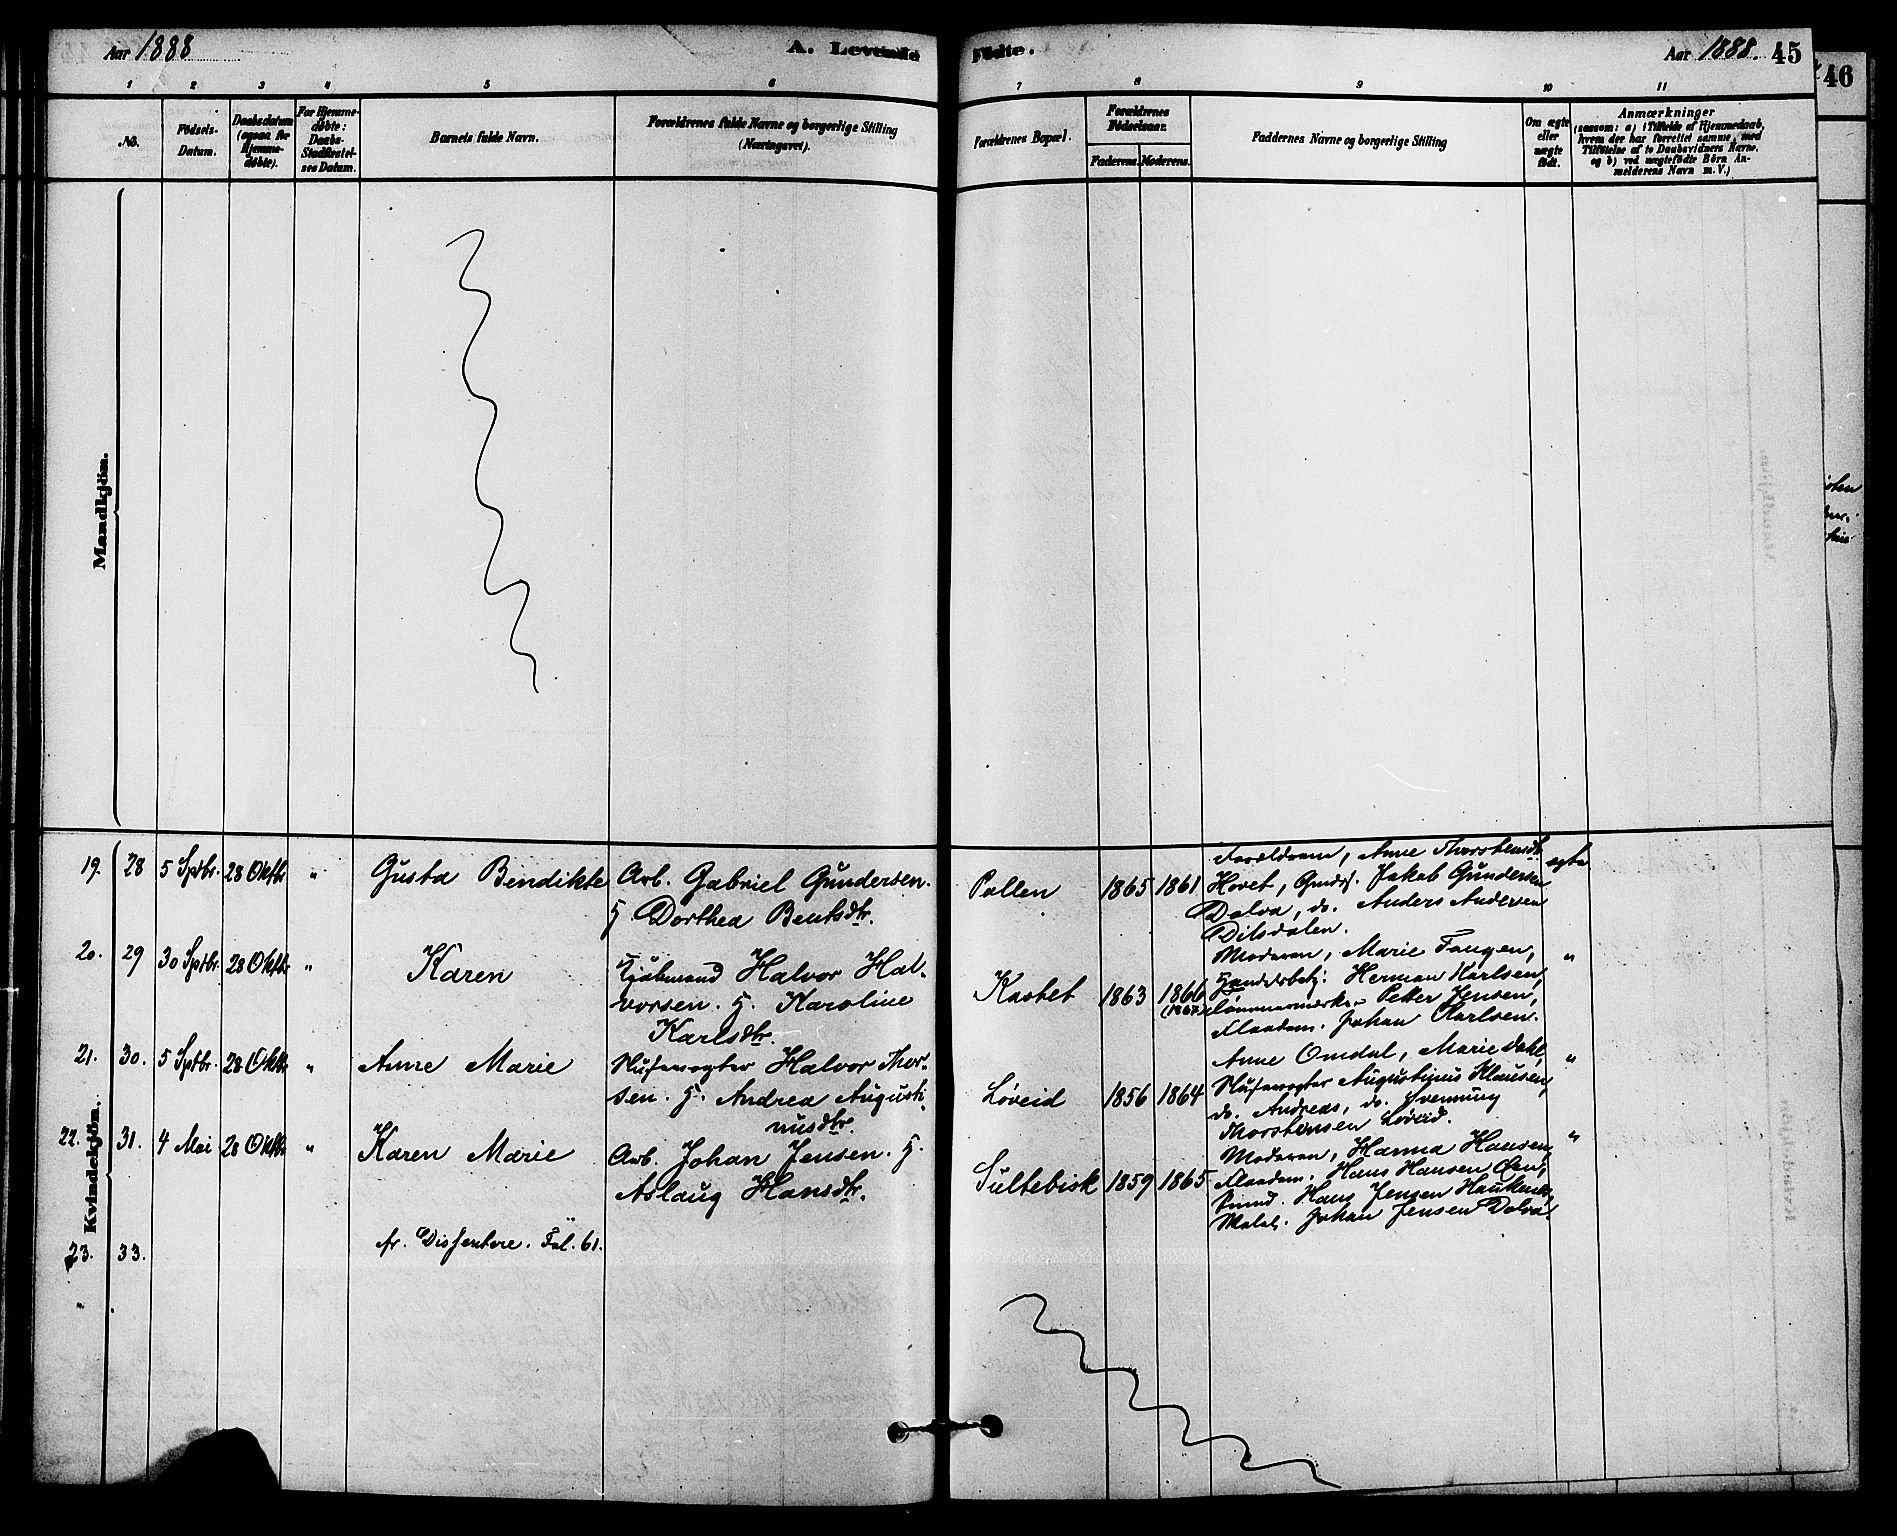 Aar 1888 A. Levende Fødte. Aar 1888. 45
46
1 2 3 4 5 6 7 8 9 10 11
No.
Fødsels-
Datum.
Daabsdatum
(ogsaa for
Hjemme-
døbte).
For Hjemme-
døbte:
Daabs-
Stadfæstel-
ses Datum.
Barnets fulde Navn.
Forældrenes fulde Navne og borgerlige Stilling
(Næringsvei).
Forældrenes Bopæl.
Forældrenes
Fødselsaar.
Faderens. Moderens.
Faddernes Navne og borgerlige Stilling
Om ægte
eller
uægte
født.
Anmærkninger
(saasom: a) i Tilfælde af Hjemmedaab,
hvem der har forrettet samme, med
Tilføielse af to Daabsvidners Navne,
og b) ved uægtefødte Børn An-
melderens Navn m. V.)
Mandkjön.
Kvindekjön.
19. 28 5 Sptbr. 28 Oktbr "
Gusta Bendikte
Arb. Gabriel Gundersen.
H. Dorthea Bentsdtr.
Pollen 1865 1861
Forældrene, Anne Thorstensdtr
Hovet, Gmdsf. Jakob Gundersen
Dalva, do. Anders Andersen
Ditsdalen.
ægte
20. 29 30 Sptbr. 28 Oktbr "
Karen
Kjøbmand Halvor Hal-
vorsen. H. Karoline
Karlsdtr.
Kastet 1863 1866
Moderen, Marie Tangen,
Handelsbetj. Herman Karlsen,
Tømmermerker Petter Jensen,
Flaadem. Johan Carlsen.
"
21. 30. 5 Sptbr. 28 Oktbr "
Anne Marie
Slusevogter Halvor Thor-
sen. H. Andrea Augusti-
nusdtr.
Løveid 1856 1864
Anne Omdal, Marie Dahl,
Slusevogter Augustinus Klausen,
do. Andreas, do. Svennung
Thorstensen Løveid.
"
22. 31. 4 Mai 28 Oktbr "
Karen Marie
Arb. Johan Jensen. H.
Aslaug Hansdtr.
Sultebisk 1859 1865
Moderen, Hanna Hansen,
Flaadem. Hans Hansen Øen,
Hans Jensen
Johan Jensen Dalva.
"
23. 33.
fr. Dissentere. Fol. 61.
"